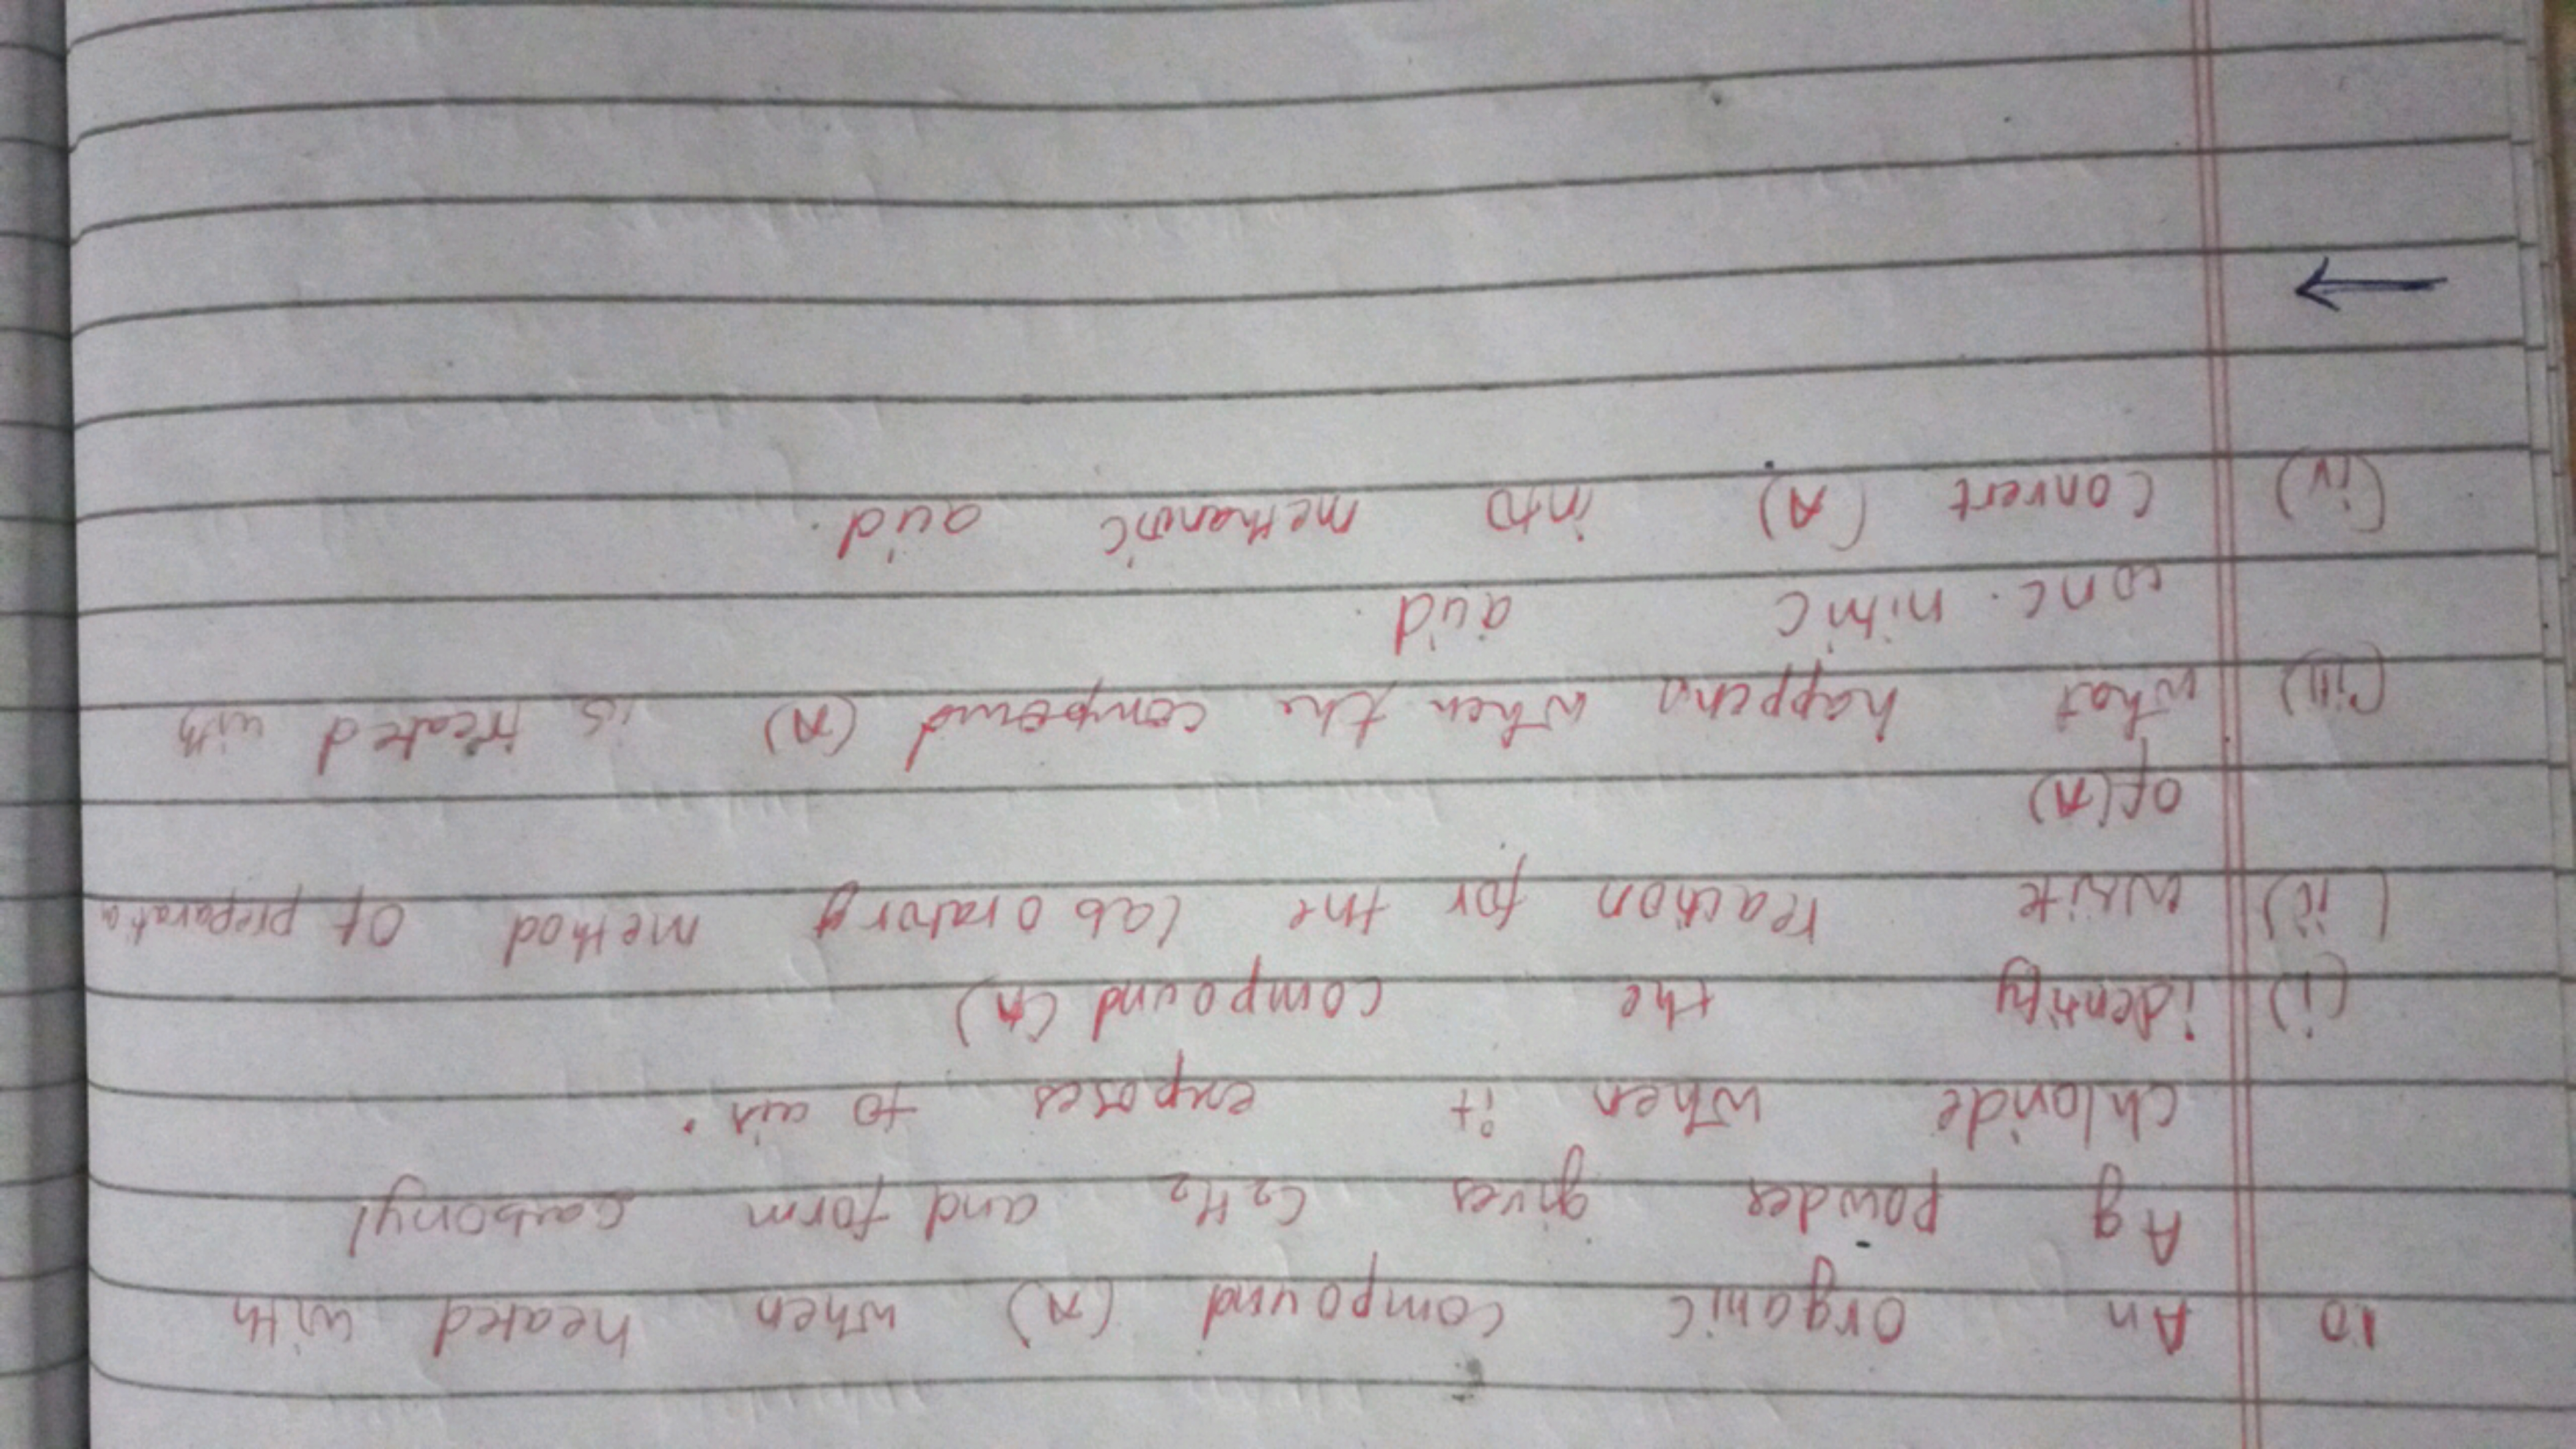 10 An organic compound (A) when heated with
Ag powder gives C2H2 and form carbonyl
chloride when it exposes to air.
(i) identify the compound (A)
(ii) write reaction for the laboratory method of preparatio
of (A)
(iii) what happens when the compound (A) is treated with
conc. nitric acid.
(iv) convert (A) into methanoic acid.
→